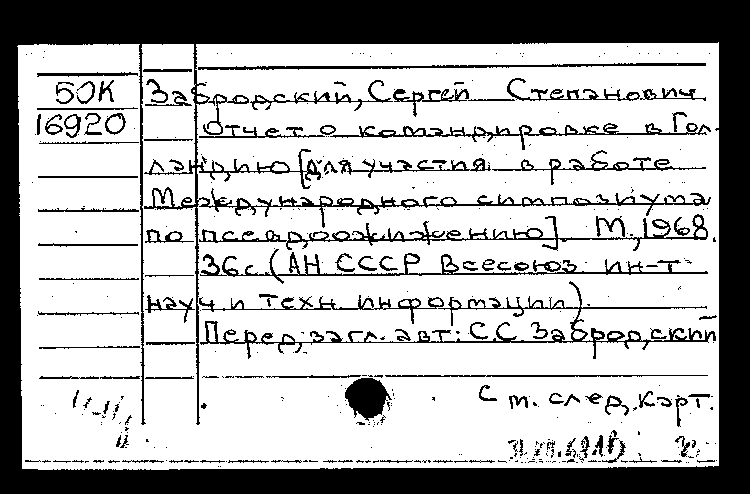 50К Забродский, Сергей Степанович
16920 Отчет о командировке в Гол-
ландию [для участия в работе
Международного симпозиума
по псевдоожижению]. М., 1968.
36с. (АН СССР Всесоюз. ин-т
науч. и техн. информации).
Перед. загл. авт.: С.С. Забродский
См. след. карт.